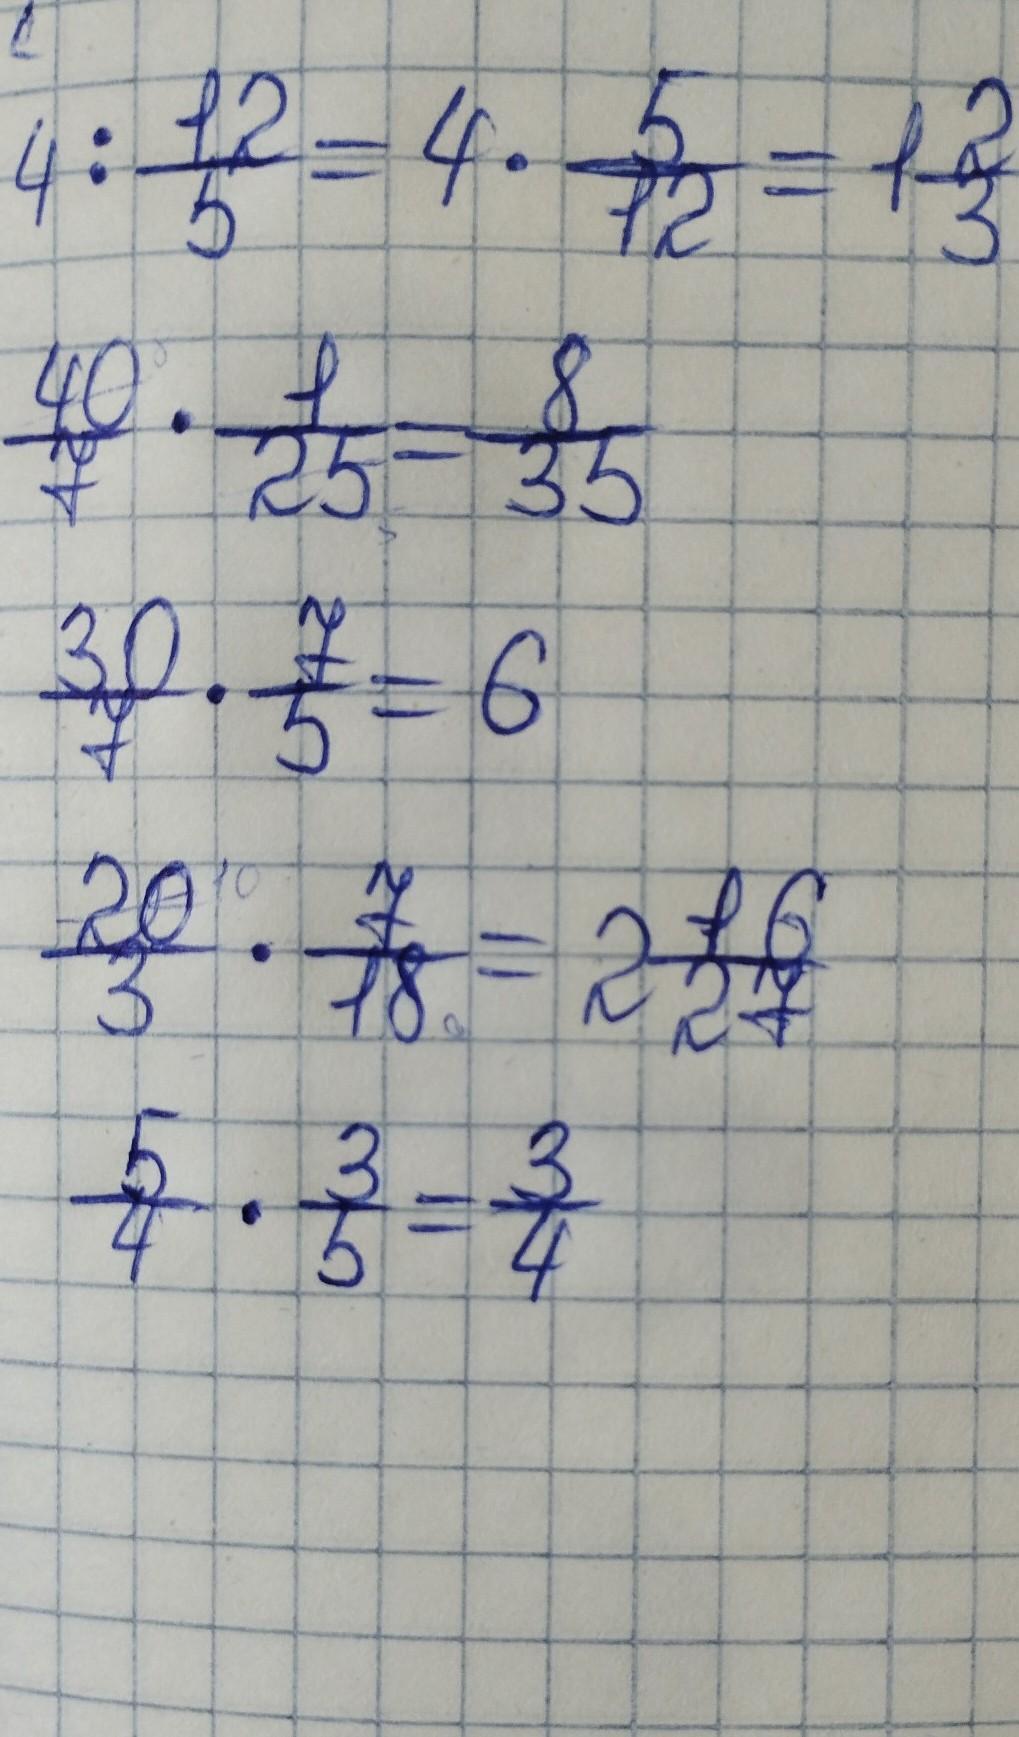 4 : 12/5 = 4 · 5/12 = 1 2/3
40/7 · 1/25 = 8/35
30/7 · 7/5 = 6
20/3 · 7/18 = 2 16/27
5/4 · 3/5 = 3/4